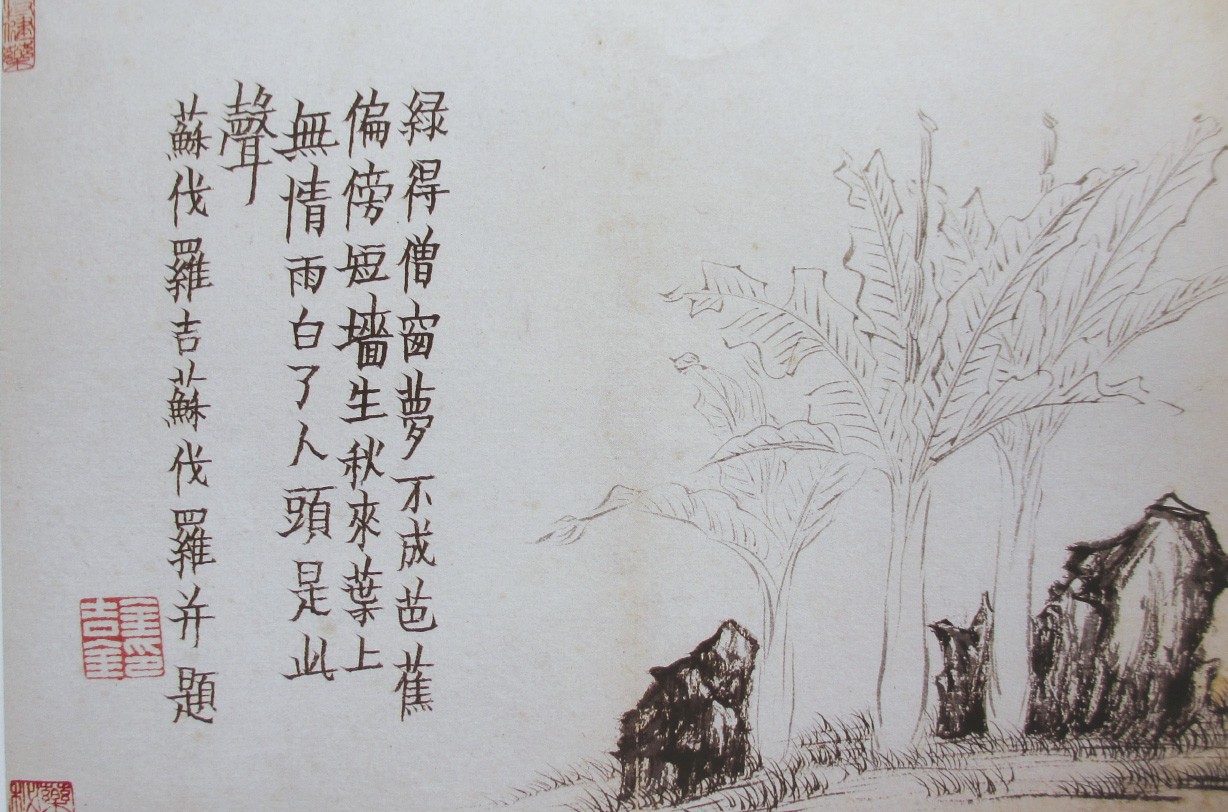 綠得僧窗夢不成芭蕉
偏傍短墻生秋來葉上
無情雨白了人頭是此
聲
蘇伐羅吉蘇伐羅并題
金吉金印